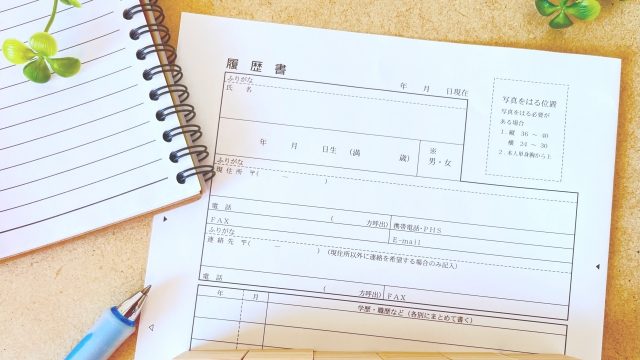 履歴書
年 月 日現在
ふりがな
氏 名
写真をはる位置
写真をはる必要が
ある場合
1. 縦 36 ～ 40
横 24 ～ 30
2. 本人単身胸から上
年 月 日生 (満 歳)
※
男・女
ふりがな
現住所 〒( － )
電 話 ( 方呼出)
携帯電話・PHS
FAX
E-mail
ふりがな
連絡先 〒( － ) (現住所以外に連絡を希望する場合のみ記入)
電 話 ( 方呼出)
FAX
年 月 学歴・職歴など (各別にまとめて書く)